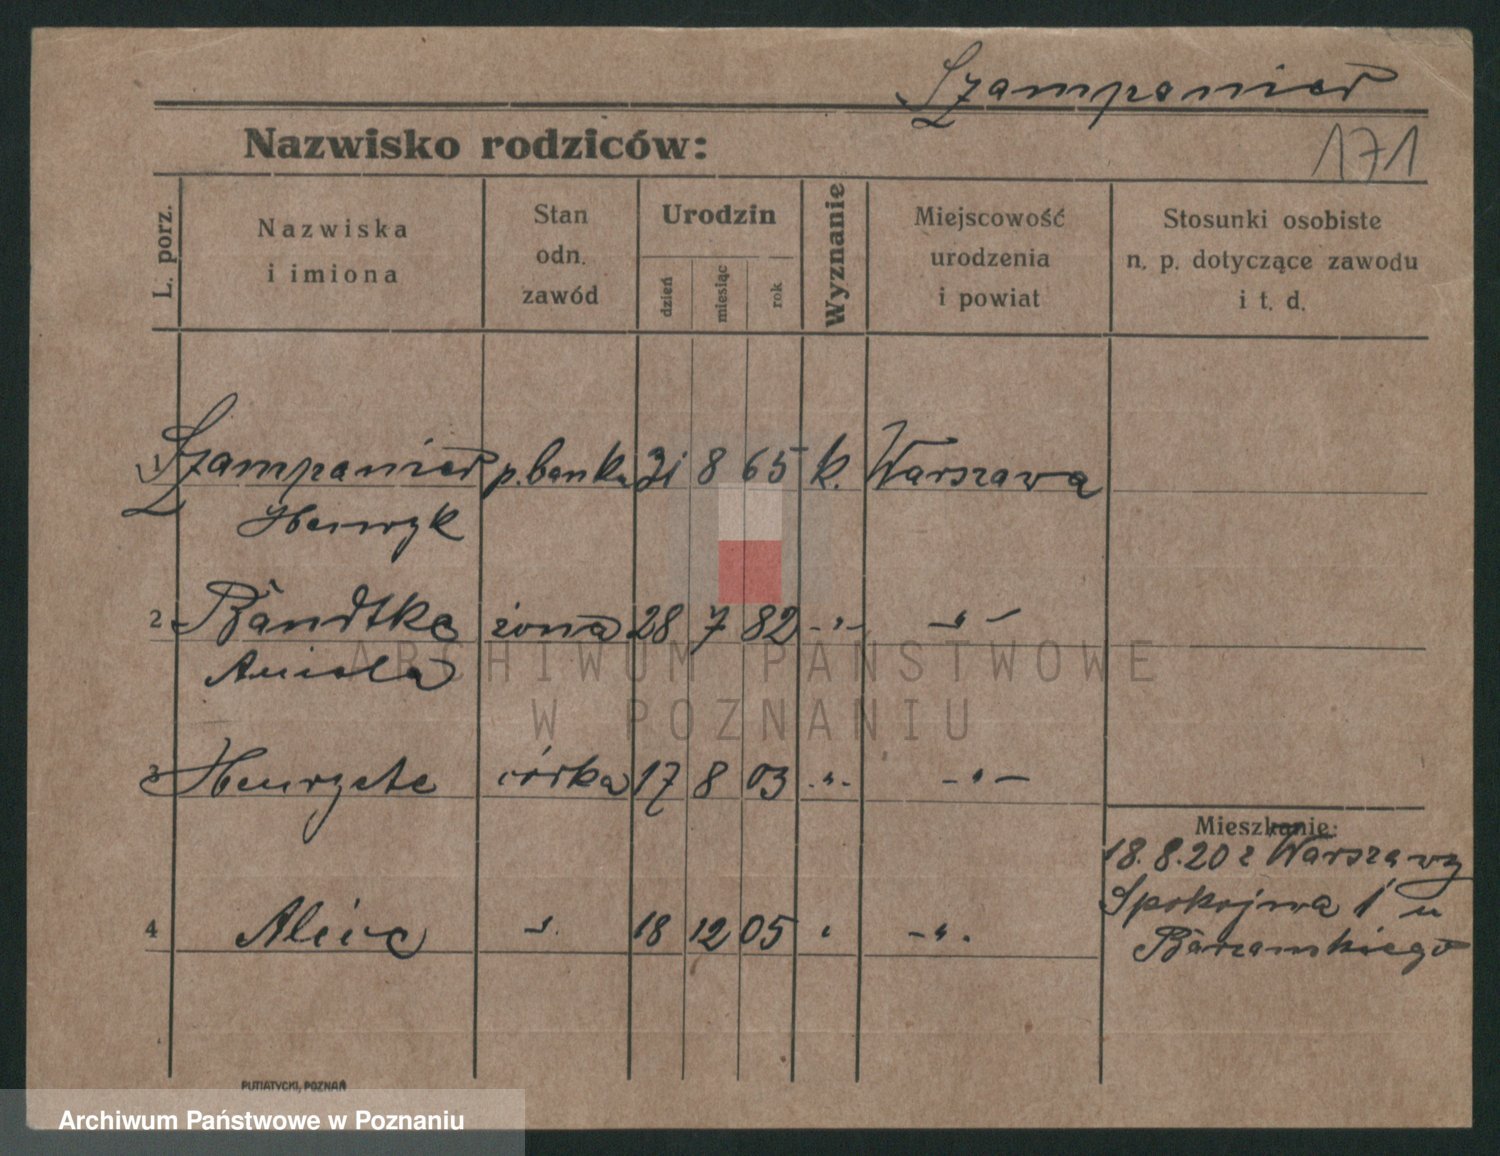 Szampanier
171
Nazwisko rodziców:
L. porz.
Nazwiska
i imiona
Stan
odn.
zawód
Urodzin
dzień
miesiąc
rok
Wyznanie
Miejscowość
urodzenia
i powiat
Stosunki osobiste
n. p. dotyczące zawodu
i t. d.
1 Szampanier p. banku 31 8 65 k. Warszawa
Henryk
2 Bandtke żona 28 7 82 -"- -"-
Aniela
3 Henryeta córka 17 8 03 -"- -"-
4 Alice -"- 18 12 05 " -"-
Mieszkanie:
18.8.20 z Warszawy
Spokojna 1 u
PUTIATYCKI, POZNAŃ
ARCHIWUM PAŃSTWOWE
W POZNANIU
Archiwum Państwowe w Poznaniu